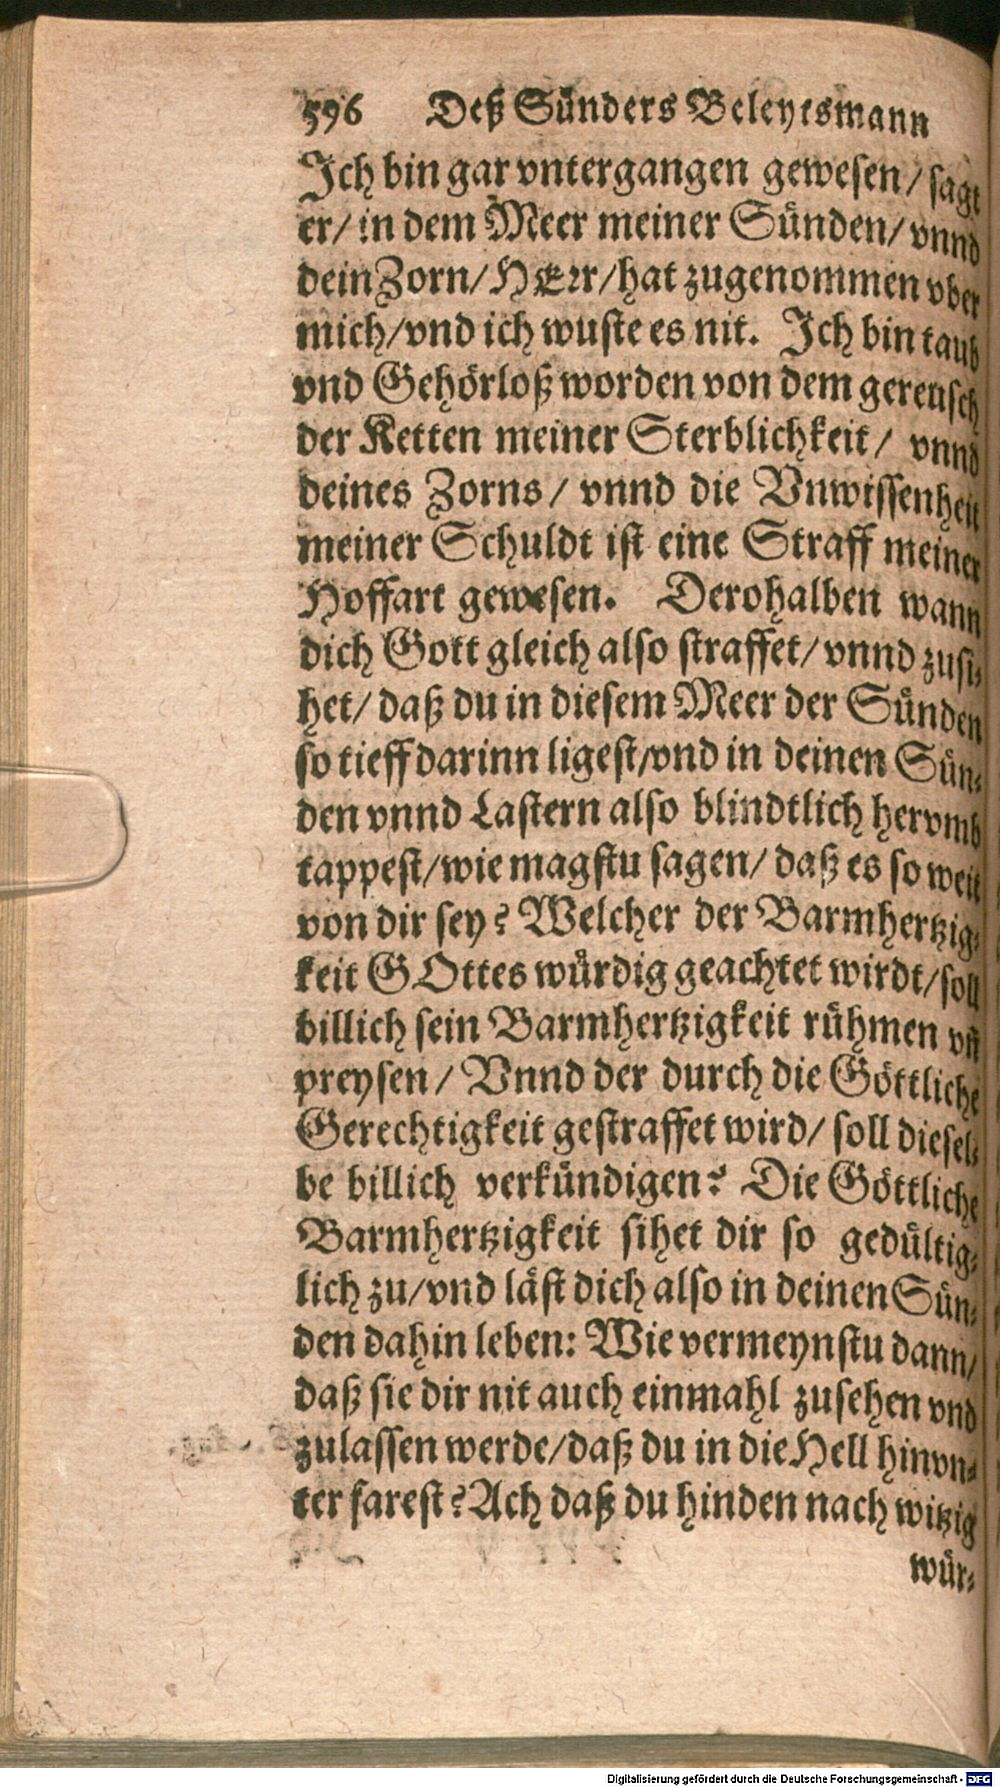 596 Deß Sünders Beleytsmann
Ich bin gar vntergangen gewesen/ sagt
er/ in dem Meer meiner Sünden/ vnnd
dein Zorn/ HErr/ hat zugenommen vber
mich/ vnd ich wuste es nit. Ich bin taub
vnd Gehörloß worden von dem gereusch
der Ketten meiner Sterblichkeit/ vnnd
deines Zorns/ vnnd die Vnwissenheit
meiner Schuldt ist eine Straff meiner
Hoffart gewesen. Derohalben wann
dich Gott gleich also straffet/ vnnd zusi-
het/ daß du in diesem Meer der Sünden
so tieff darinn ligest/ vnd in deinen Sün-
den vnnd Lastern also blindtlich hervmb
tappest/ wie magstu sagen/ daß es so weit
von dir sey? Welcher der Barmhertzig-
keit GOttes würdig geachtet wirdt/ soll
billich sein Barmhertzigkeit rühmen vñ
preysen/ Vnnd der durch die Göttliche
Gerechtigkeit gestraffet wird/ soll diesel-
be billich verkündigen? Die Göttliche
Barmhertzigkeit sihet dir so gedültig-
lich zu/ vnd läst dich also in deinen Sün-
den dahin leben: Wie vermeynstu dann/
daß sie dir nit auch einmahl zusehen vnd
zulassen werde/ daß du in die Hell hinvn-
ter farest? Ach daß du hinden nach witzig
wür-
Digitalisierung gefördert durch die Deutsche Forschungsgemeinschaft - DFG